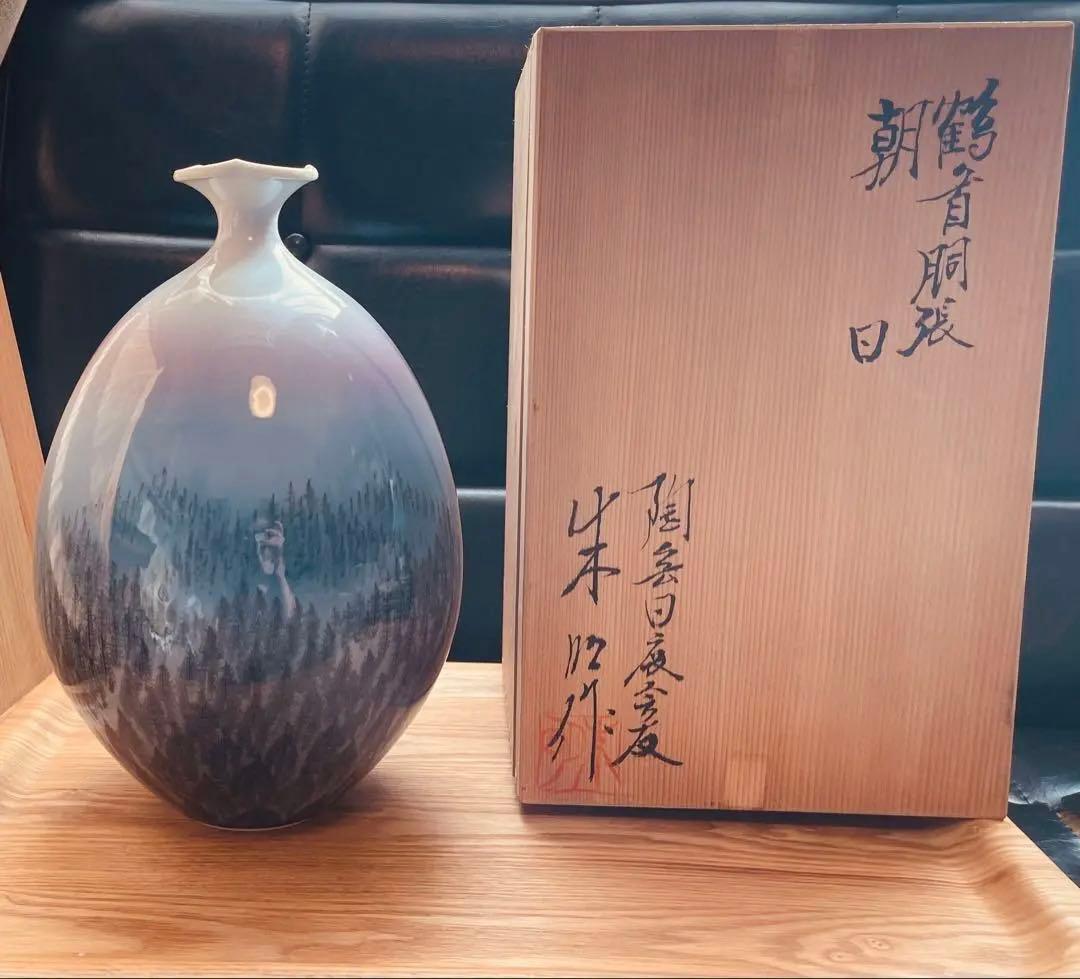 鶴首胴張
朝日
陶芸日展会友
作